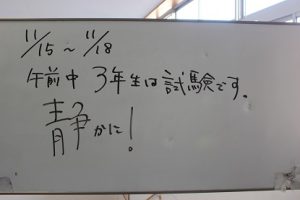 11/15～11/18
午前中 3年生は試験です。
静かに!